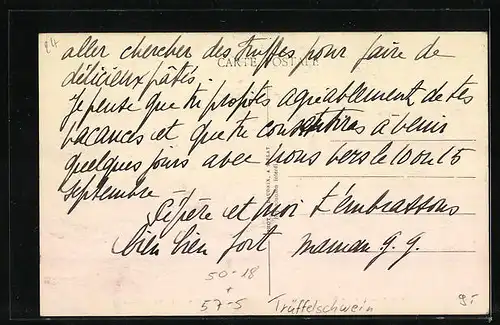 24
aller chercher des truffes pour faire de
CARTE POSTALE
délicieux pâtés.
Je pense que tu profites agréablement de tes
vacances et que tu à venir
quelques jours avec nous vers le 10 ou 15
septembre –
père et moi t'embrassons
bien bien fort maman g. g.
50-18
+
57-5
Trüffelschwein
9.-